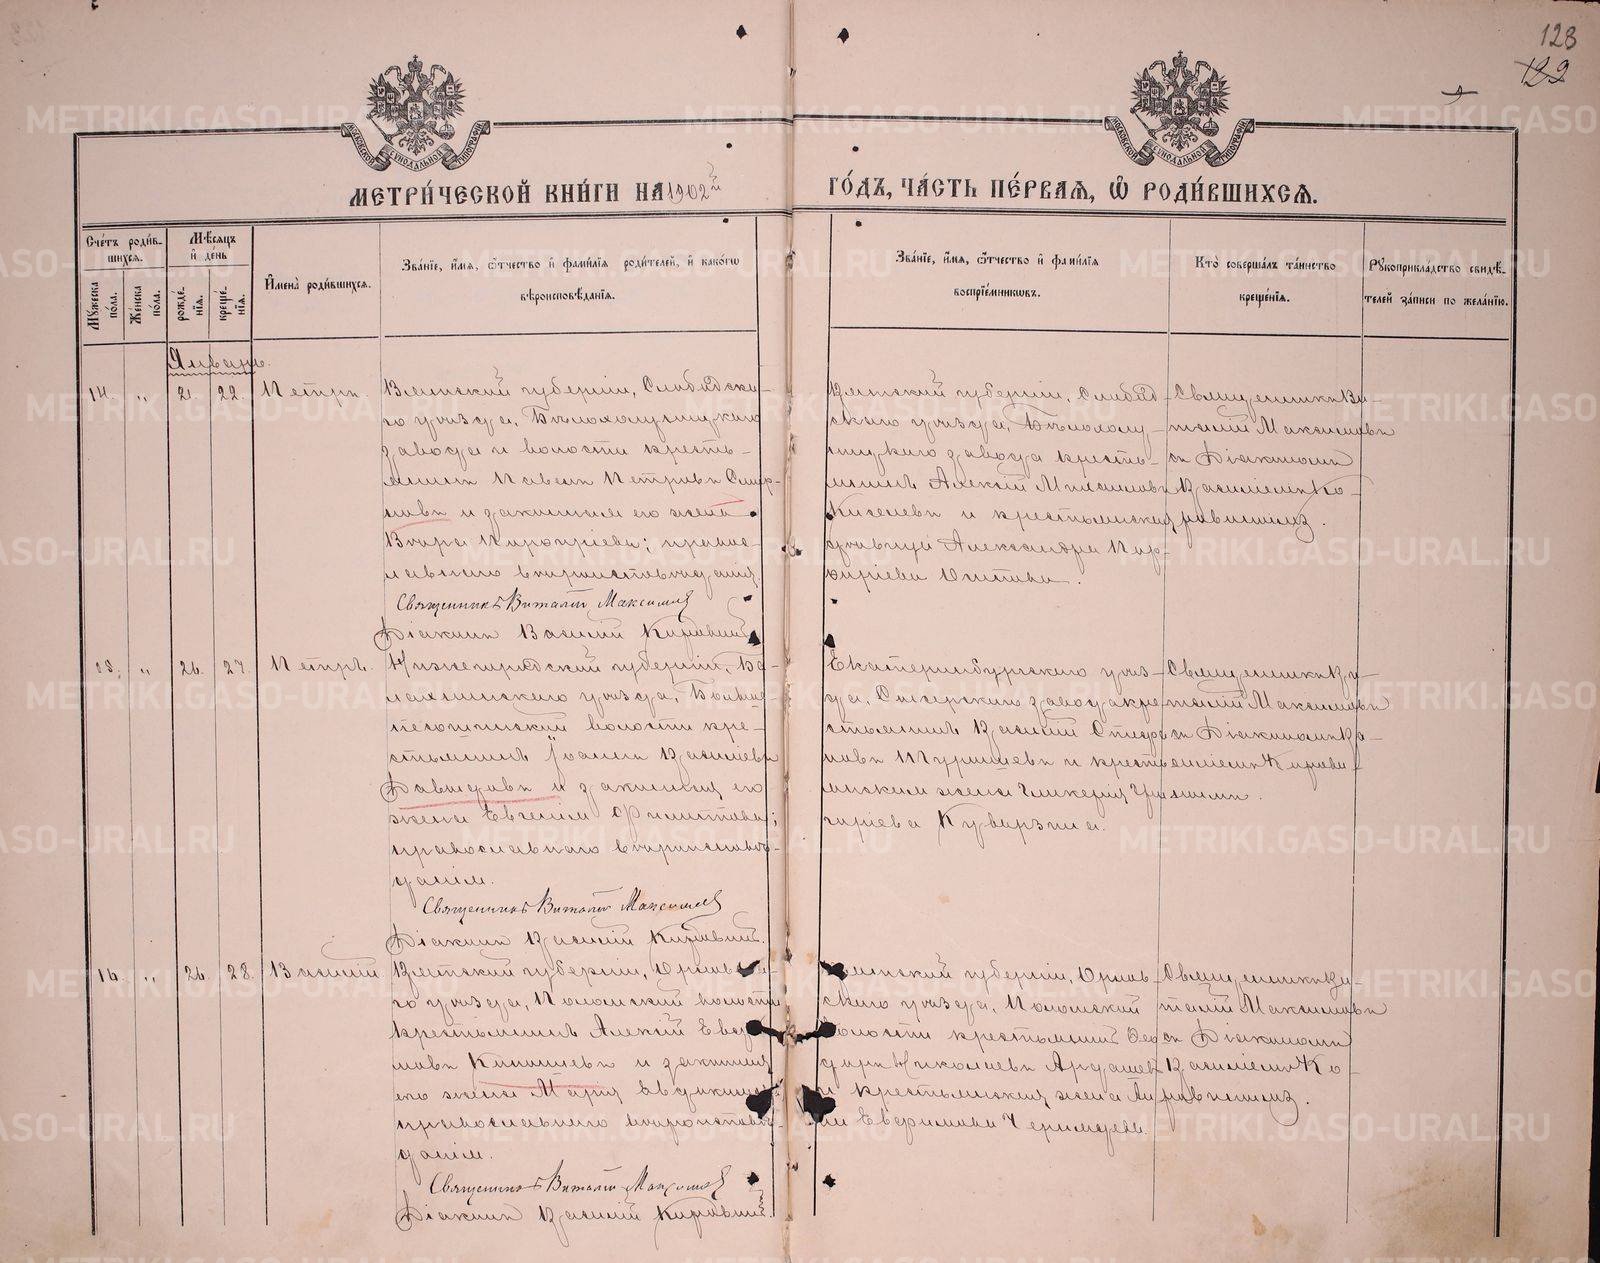 128
122
МОСКОВСКОЙ СѴНОДАЛЬНОЙ ТИПОГРАФІИ
МОСКОВСКОЙ СѴНОДАЛЬНОЙ ТИПОГРАФІИ
МЕТРИ́ЧЕСКОЙ КНИ́ГИ НА 1902й ГО́ДЪ, ЧА́СТЬ ПЕ́РВАѦ, Ѡ РОДИ́ВШИХСѦ.
Сче́тъ роди́вшихсѧ.
Мꙋ́жеска по́ла.
Же́нска по́ла.
Мѣ́сѧцъ и҆ де́нь
рожде́нїѧ.
креще́нїѧ.
И҆мена̀ роди́вшихсѧ.
Зва́нїе, и҆́мѧ, ѻ҆́тчество и҆ фами́лїѧ роди́телей, и҆ како́гѡ
вѣроисповѣ́данїѧ.
Зва́нїе, и҆́мѧ, ѻ҆́тчество и҆ фами́лїѧ
воспрїе́мникѡвъ.
Кто̀ соверша́лъ та́инство
креще́нїѧ.
Рꙋкоприкла́дство свидѣ́-
телей за́писи по жела́нїю.
Январь.
14. " 21. 22. Петръ.
Вятской губерніи, Слободска-
го уѣзда, Бѣлохолуницкаго
завода и волости кресть-
янинъ Павелъ Петровъ
и законная его жена
Вѣра Порфиріева; право-
славнаго вѣроисповѣданія.
Священникъ Виталій Максимовъ
Діаконъ Василій
Вятской губерніи, Слобод-
скаго уѣзда, Бѣлохолу-
ницкаго завода кресть-
янинъ Алексій
Киселевъ и крестьянская
дѣвица Александра Пор-
фиріева
Священникъ Ви-
талій Максимовъ
съ Діакономъ
Василіемъ
15. " 26. 27. Петръ.
Нижегородской губерніи, Ба-
лахнинскаго уѣзда,
волости кре-
стьянинъ Іоаннъ Васильевъ
Давыдовъ и законная его
жена Евгенія Филиппова;
православнаго вѣроисповѣ-
данія.
Священникъ Виталій Максимовъ
Діаконъ Василій
Екатеринбургскаго уѣз-
да, Сысертскаго завода кре-
стьянинъ Василій
и кресть-
янская жена Гликерія Гри-
горіева
Священникъ Ви-
талій Максимовъ
съ Діакономъ Ва-
силіемъ
16. " 26. 28. Василій
Вятской губерніи, Орловска-
го уѣзда, Поломской волости
крестьянинъ Алексій
и законная
его жена Марія
православнаго вѣроисповѣ-
данія.
Священникъ Виталій Максимовъ
Діаконъ Василій
Вятской губерніи, Орлов-
скаго уѣзда, Поломской
волости крестьянинъ Ѳео-
доръ Николаевъ Ардашевъ
и крестьянская жена
Священникъ Ви-
талій Максимовъ
съ Діакономъ
Василіемъ
METRIKI.GASO-URAL.RU